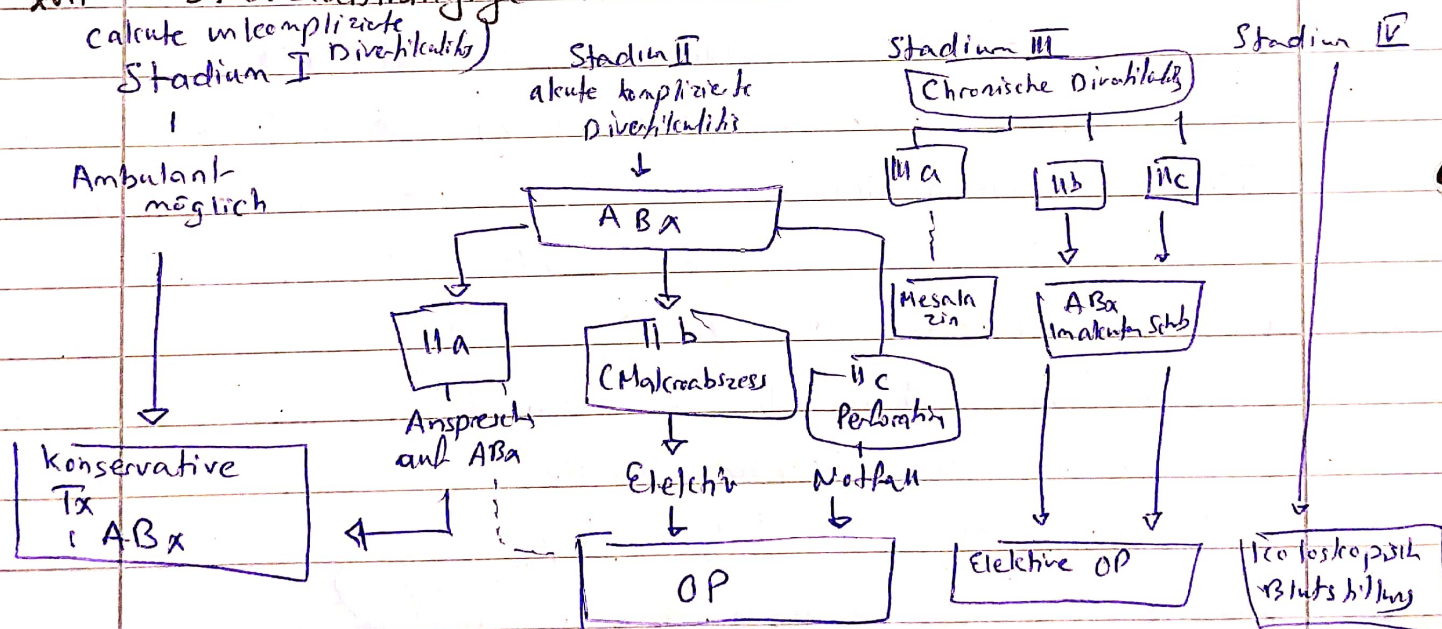 (akute unkomplizierte
Divertikulitis)
Stadium I
Ambulant
möglich
Konservative
Tx
ABx
Stadium II
akute komplizierte
Divertikulitis
ABx
IIa
Ansprechen
auf ABx
II b
(Makroabszess
Elektiv
IIc
Perforation
Notfall
OP
Stadium III
Chronische Divertikulitis
IIIa
Mesala
zin
IIb
IIc
ABx
im akuten Schub
Elektive OP
Stadium IV
Koloskopisch
Blutstillung